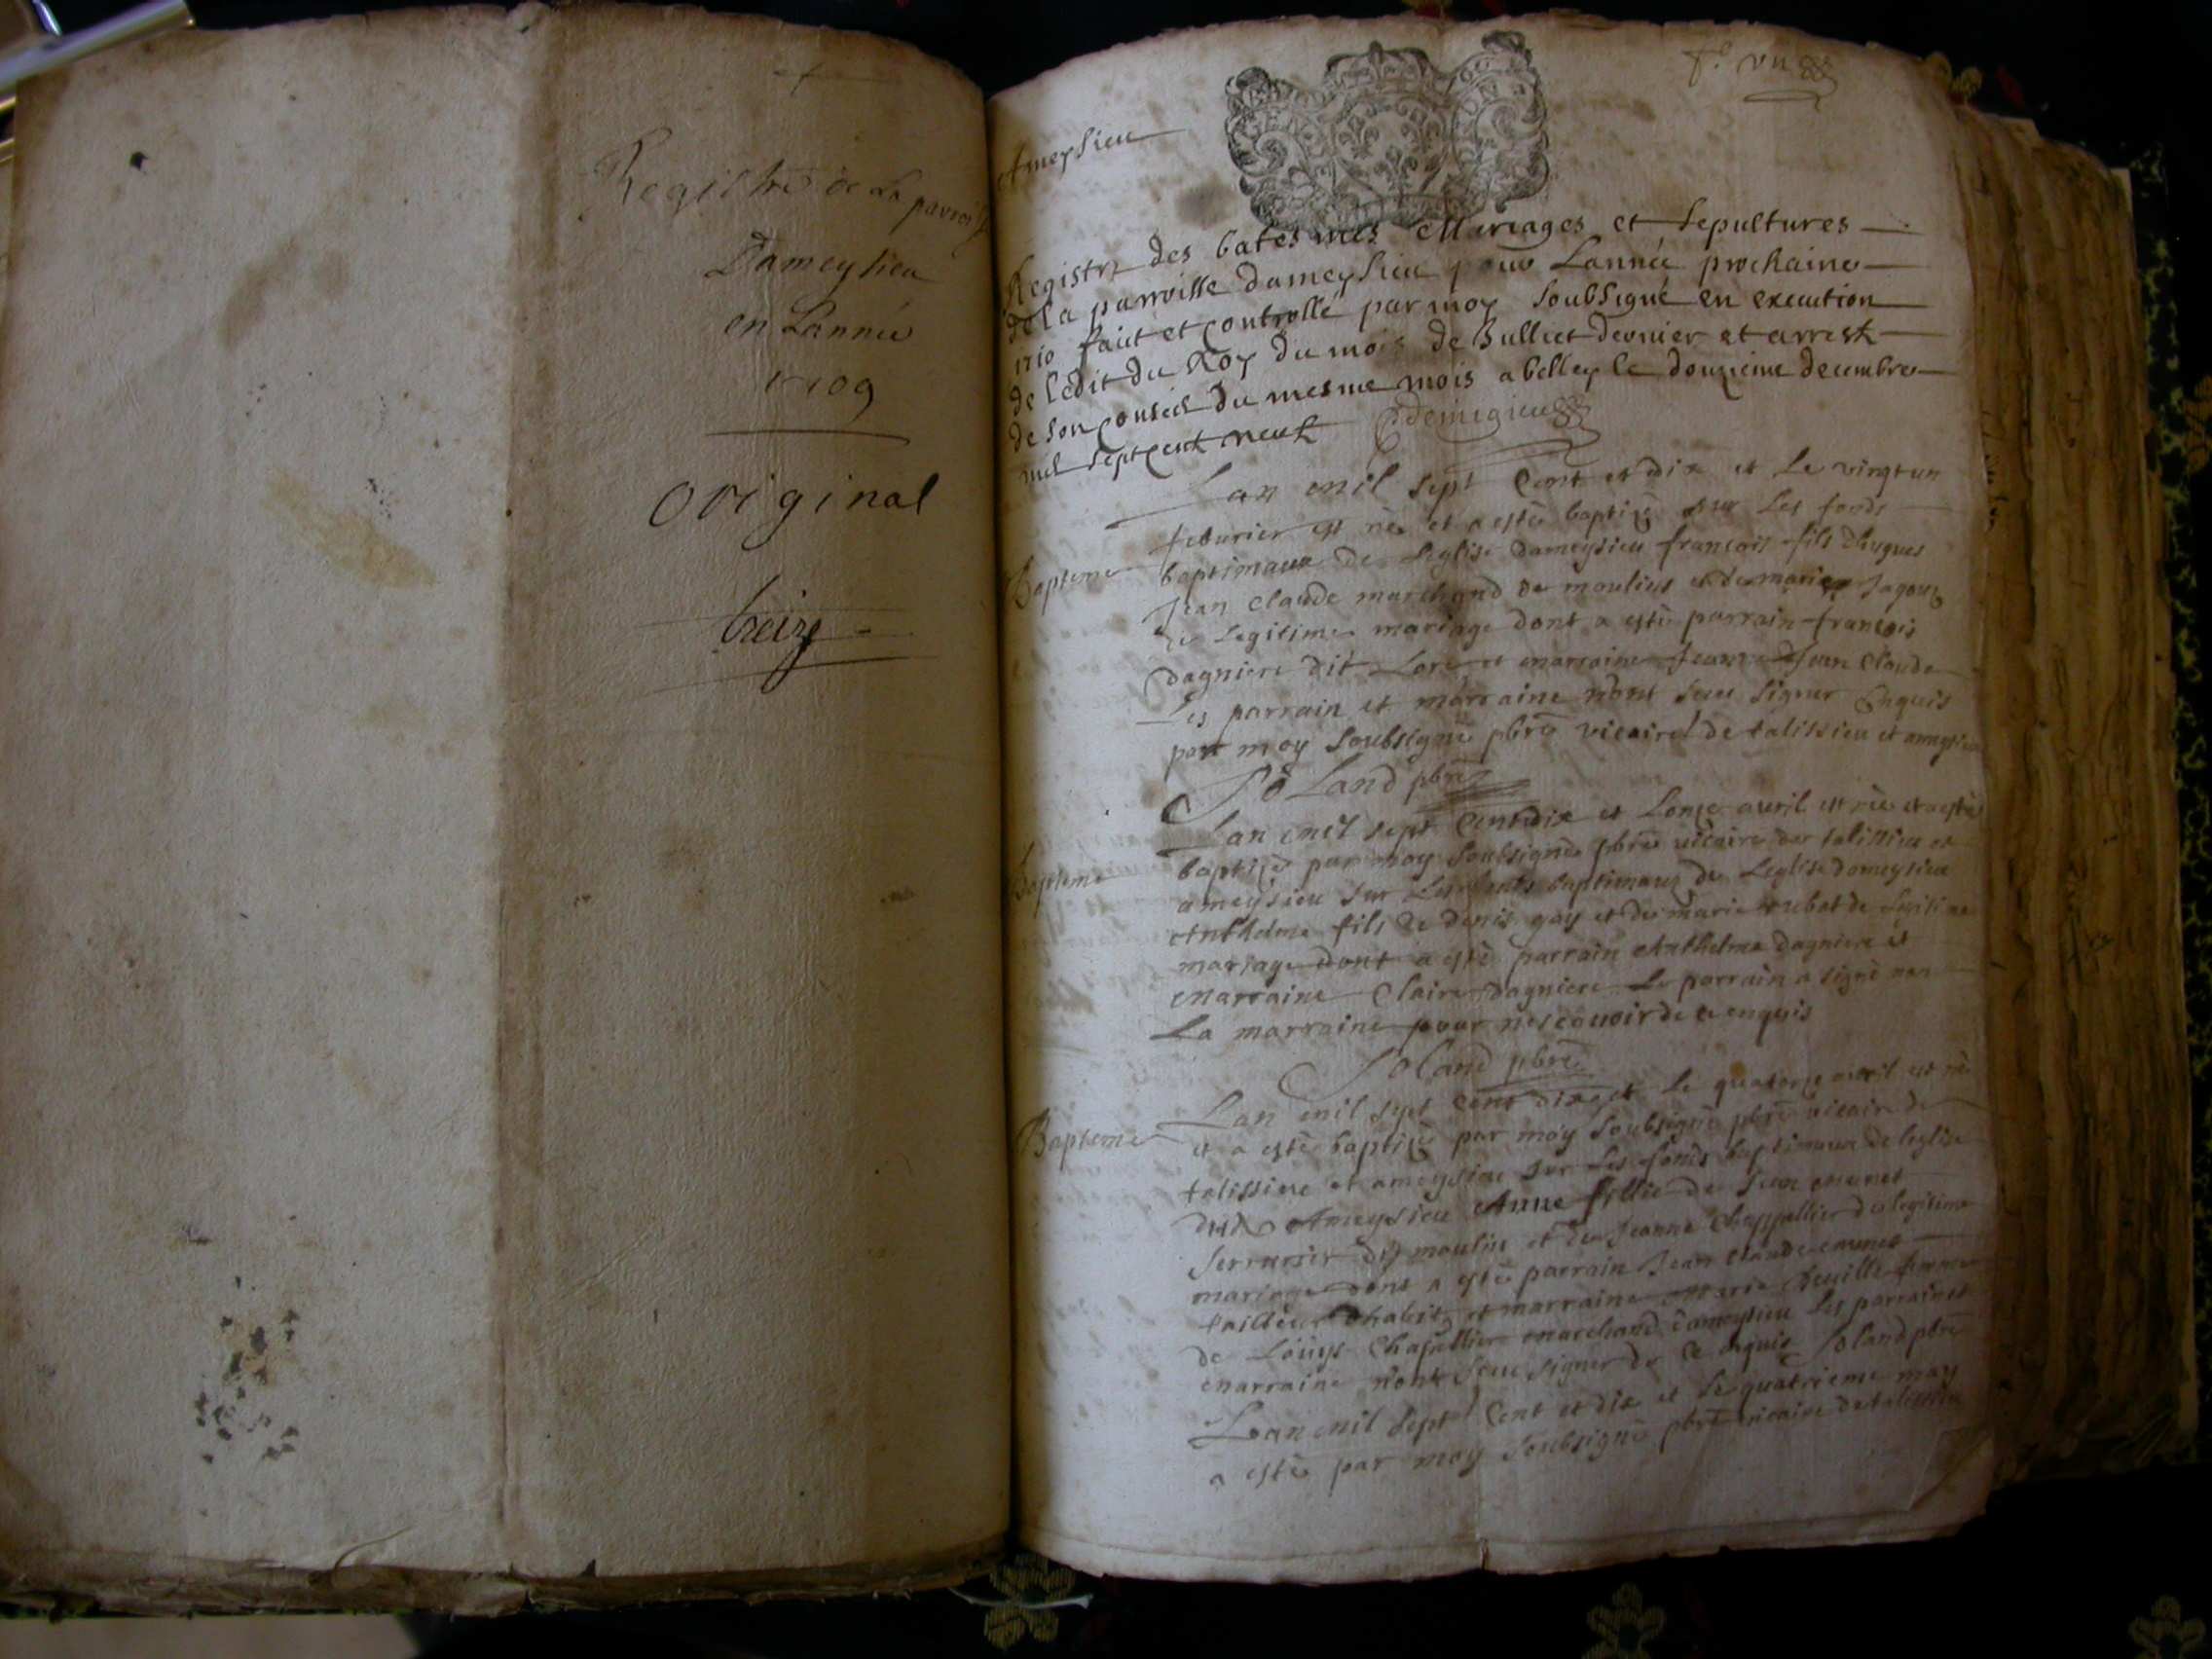 Registre de La parroisse
Dameysieu
en Lannée
1709
Original
treize
f.º un
Ameysieu
Registre des batesmes Mariages et Sepultures
de la parroisse dameysieu pour Lannée prochaine
1710 fait et controllé par moy soubsigné en execution
de ledit du Roy du mois de Juillet dernier et arrest
de son conseil du mesme mois a belley le douzieme decembre
mil sept cent neuf
Lan mil sept Cent et dix et Le vingt un
Bapteme
feburier est né et a esté baptizé sur Les fonds
baptimaux de Leglise dameysieu francois fils dhugues
Jean Claude marchand de moulins et de marie
de Legitime mariage dont a esté parrain francois
dagniere dit et marraine Jeanne Jean Claude
Les parrain et marraine n'ont sceu signer Enquis
par moy soubsigné pbre vicaire de talissieu et ameysieu
Soland pbre
Lan mil sept Cent dix et Lonze avril est né et a esté
Bapteme
baptizé par moy soubsigné pbre vicaire de talissieu et
ameysieu sur Les fonds baptimaux de Leglise dameysieu
Anthelme fils de denis gay et de marie de
mariage dont a esté parrain Anthelme dagniere et
marraine Claire dagniere Le parrain a signé non
La marraine pour ne scavoir de ce enquis
Soland pbre
Lan mil sept Cent dix et Le quatorze avril est né
Bapteme
et a esté baptizé par moy soubsigné pbre vicaire de
talissieu et ameysieu sur Les fonds baptimaux de leglise
dud Ameysieu Anne fillie de Jean
serrurier des moulins et de Jeanne Chappellier de legitime
mariage dont a esté parrain Jean Claude
tailleur dhabits et marraine marie femme
de Louys Chapellier marchand dameysieu Les parrain et
marraine n'ont sceu signer de ce enquis Soland pbre
Lan mil sept Cent et dix et Le quatrieme may
a esté par moy soubsigné pbre vicaire de talissieu